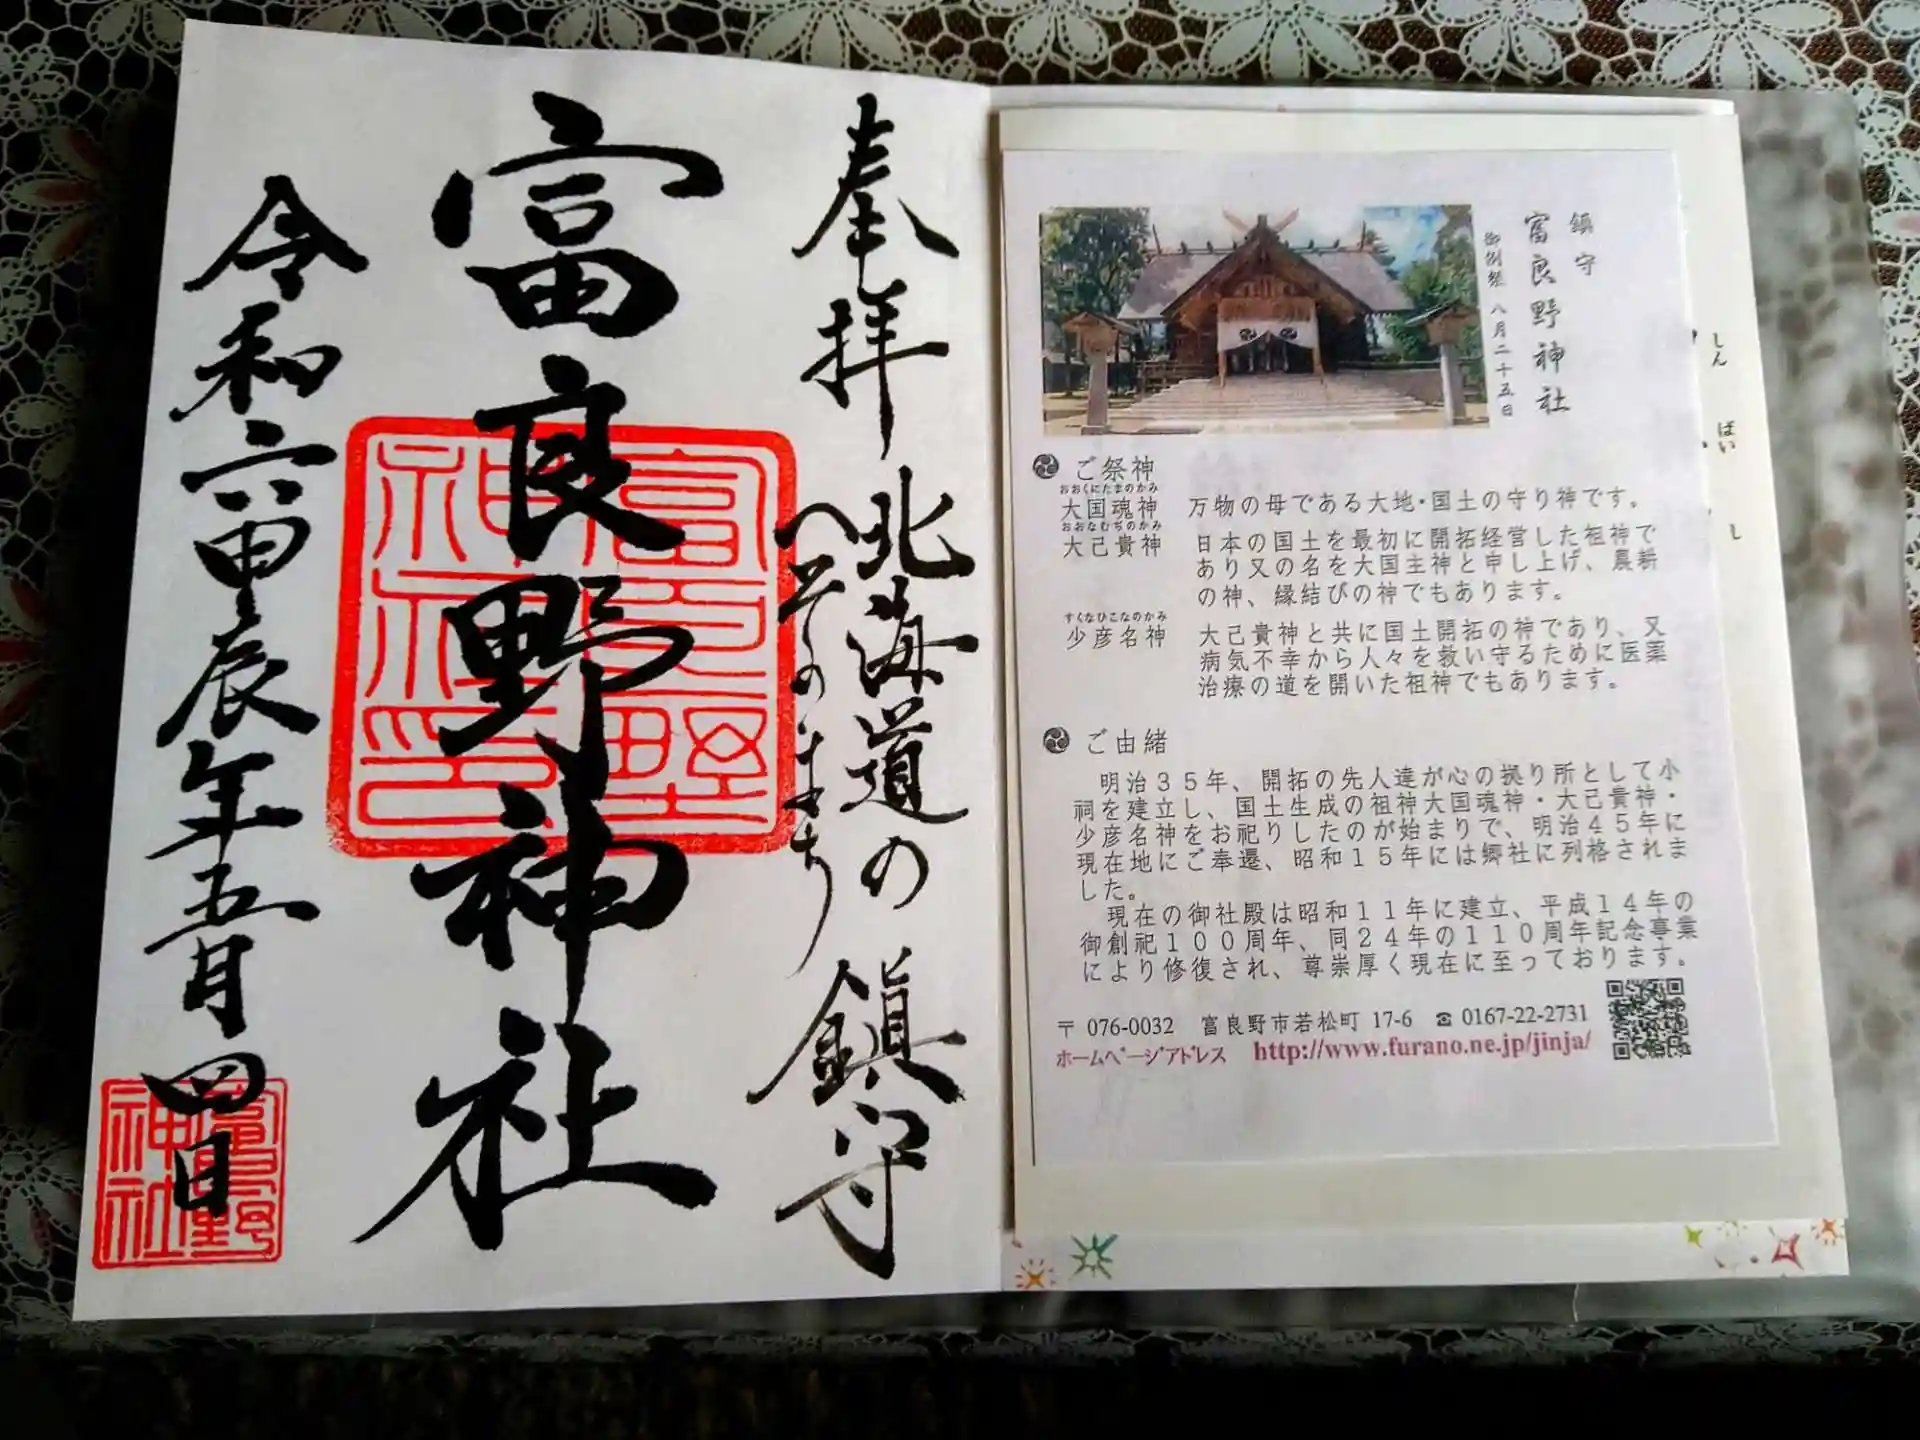 奉拝
北海道の
へそのまち
鎮守
富良野神社
令和六甲辰年五月四日
富良野神社印
富良野神社
鎮守
富良野神社
御例祭 八月二十五日
ご祭神
おおくにたまのかみ
大国魂神 万物の母である大地・国土の守り神です。
おおなむぢのかみ
大己貴神 日本の国土を最初に開拓経営した祖神で
あり又の名を大国主神と申し上げ、農耕
の神、縁結びの神でもあります。
すくなひこなのかみ
少彦名神 大己貴神と共に国土開拓の神であり、又
病気不幸から人々を救い守るために医薬
治療の道を開いた祖神でもあります。
ご由緒
明治35年、開拓の先人達が心の拠り所として小
祠を建立し、国土生成の祖神大国魂神・大己貴神・
少彦名神をお祀りしたのが始まりで、明治45年に
現在地にご奉遷、昭和15年には郷社に列格されま
した。
現在の御社殿は昭和11年に建立、平成14年の
御創祀100周年、同24年の110周年記念事業
により修復され、尊崇厚く現在に至っております。
〒 076-0032 富良野市若松町 17-6 ☎ 0167-22-2731
ホームページアドレス http://www.furano.ne.jp/jinja/
しん
ぱい
し